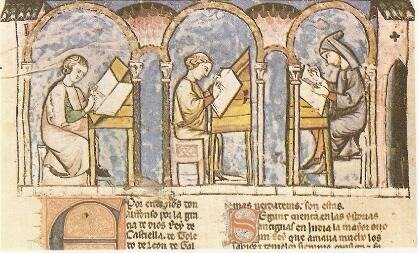 Por ende nos don
Alfonso por la gra
cia de dios Rey de
Castiella, de Tole
do de Leon de Gal
mas uerdaderas, son estas.
Segunt cuenta en las estorias
antiguas en India la mayor ouo
un Rey que amaua mucho los